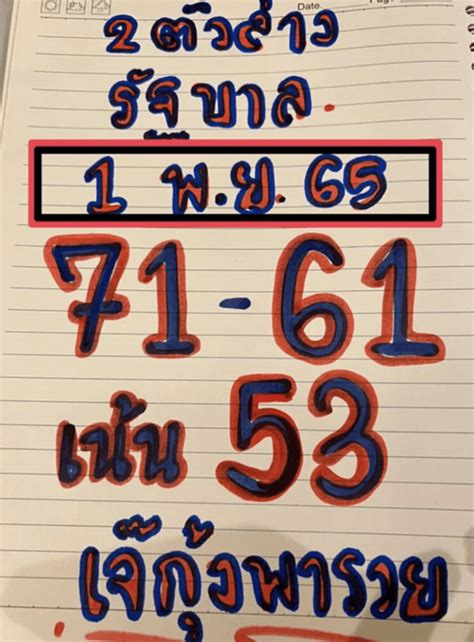 Date.
2 ตัวล่าง
รัฐบาล.
1 พ.ย. 65
71 - 61
เน้น 53
เจ๊กุ้งพารวย